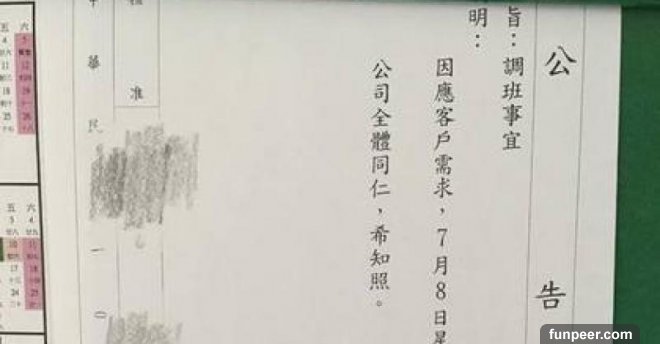 公告
旨：調班事宜
明：
因應客戶需求，7月8日星
公司全體同仁，希知照。
准
華民
一〇
五 六
五 六
funpeer.com